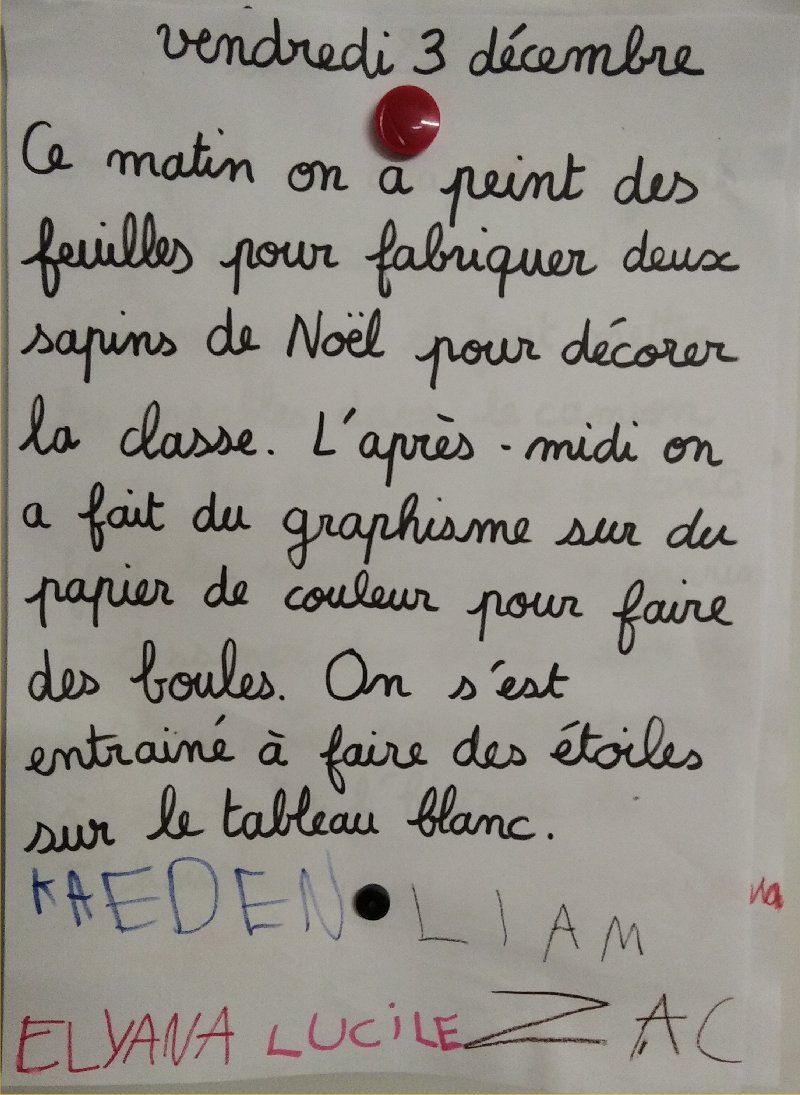 vendredi 3 décembre
Ce matin on a peint des
feuilles pour fabriquer deux
sapins de Noël pour décorer
la classe. L'après-midi on
a fait du graphisme sur du
papier de couleur pour faire
des boules. On s'est
entrainé à faire des étoiles
sur le tableau blanc.
KAEDEN LIAM
ELYANA LUCiLE ZAC